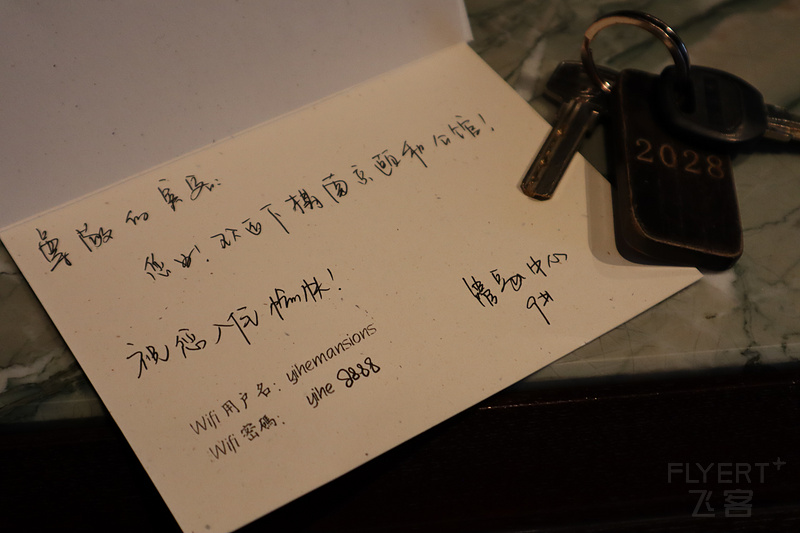 尊敬的宾客:
您好!欢迎下榻南京颐和公馆!
祝您入住愉快!
管家中心
9#
Wifi 用户名: yihemansions
Wifi 密碼: yihe 8888
2028
FLYERT+
飞客